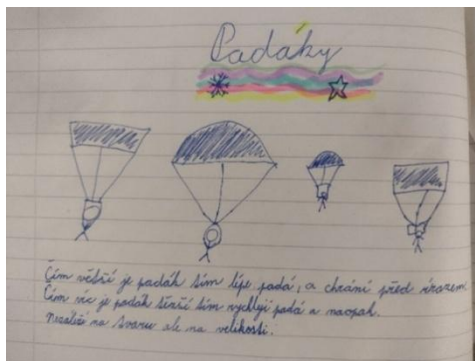 Padáky
Čím větší je padák tím lépe padá, a chrání před úrazem
Čím víc je padák těžší tím rychleji padá a naopak.
Nezáleží na tvaru ale na velikosti.